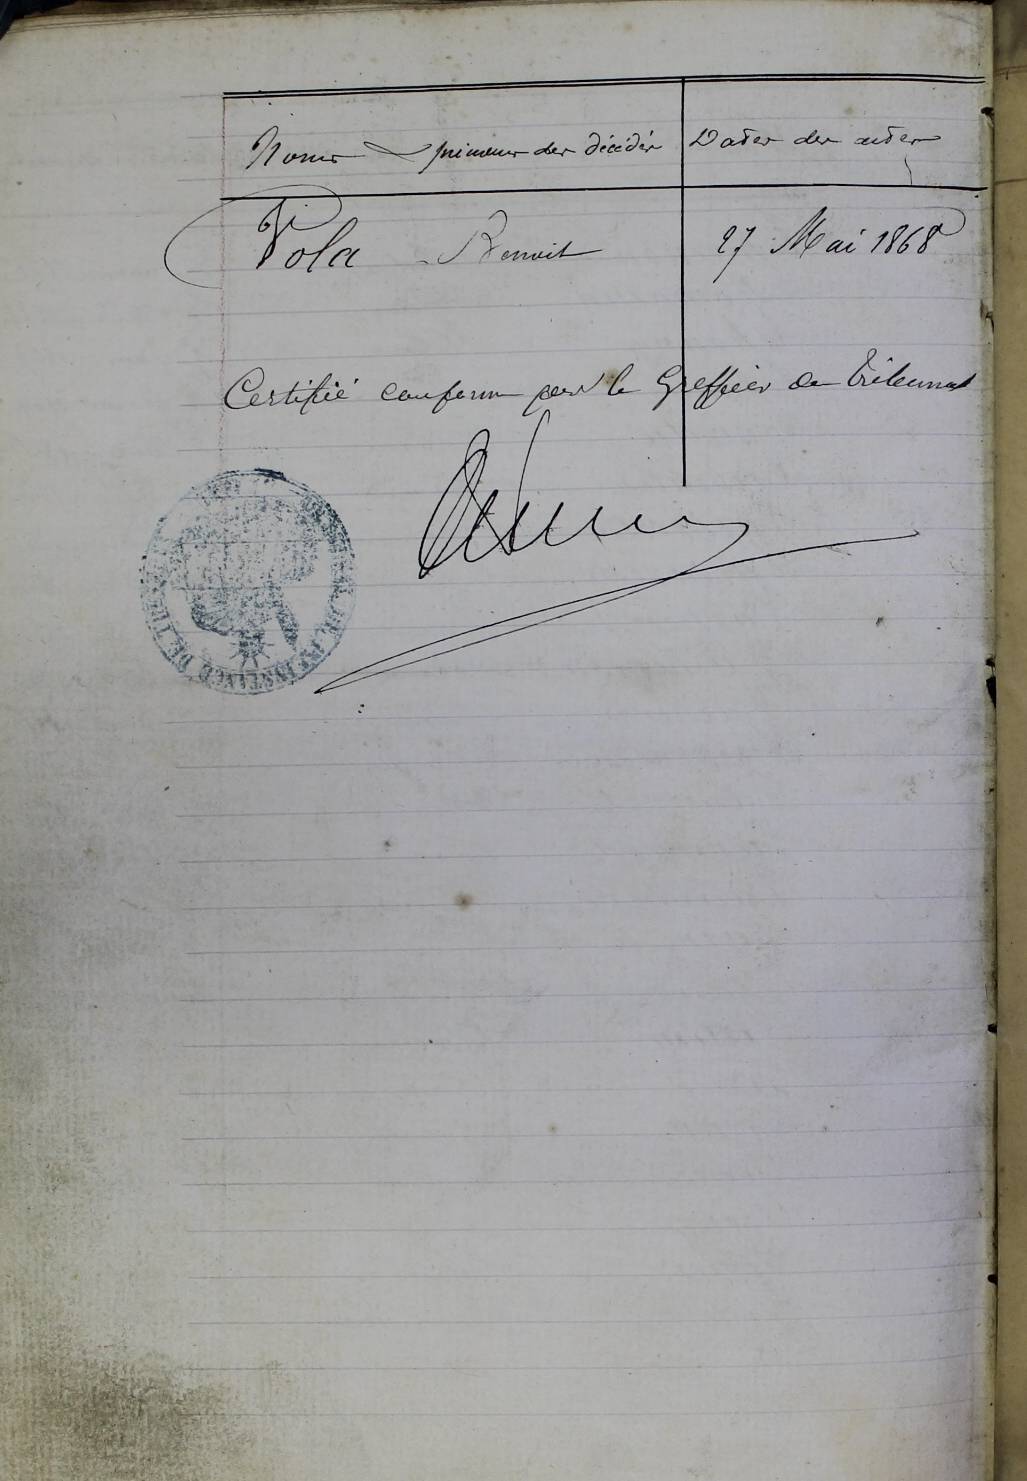 Noms & prénoms des décédés Dates des actes
Vola Benoit 27 Mai 1868
Certifié conforme par le Greffier du Tribunal
INSTANCE DE